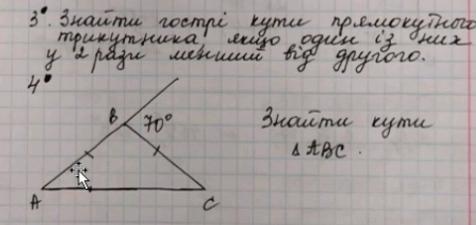 3°. Знайти гострі кути прямокутного
трикутника якщо один із них
у 2 рази менший від другого.
4°
B 70°
Знайти кути
Δ ABC.
A C